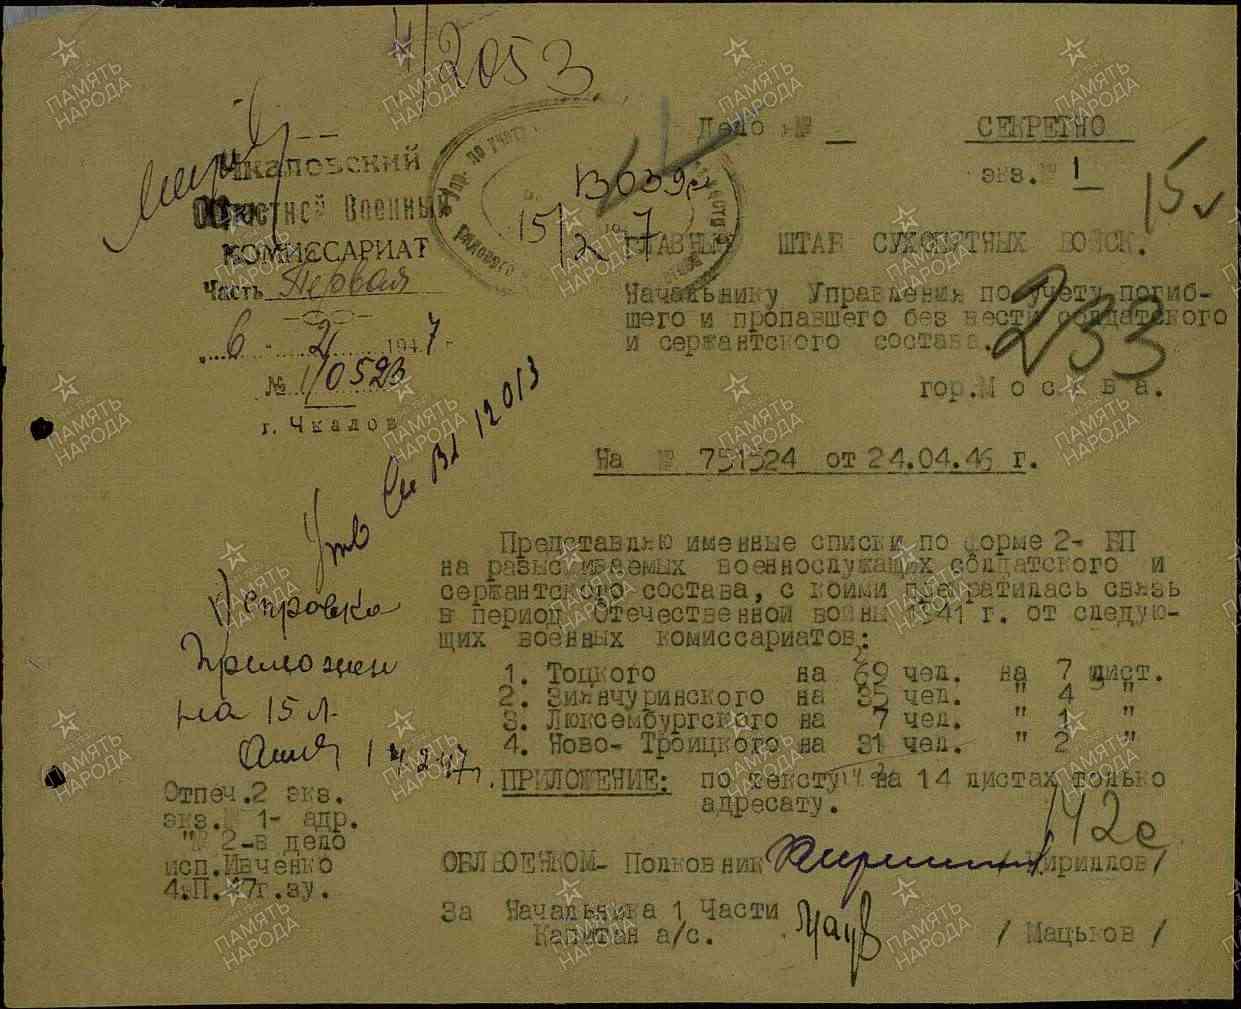 4/2053
Дело № _
СЕКРЕТНО
экз.№ 1
15
Чкаловский
Областной Военный
КОМИССАРИАТ
Часть Первая
„ 6 " 2 1947 г.
№ 1/0523
г. Чкалов
Упр. по учету
рядового и
13039с
15/2 1947
ГЛАВНЫЙ ШТАБ СУХОПУТНЫХ ВОЙСК.
Начальнику Управления по учету погиб-
шего и пропавшего без вести солдатского
и сержантского состава.
233
гор.М о с к в а.
См Вх 12013
На № 751524 от 24.04.46 г.
Представляю именные списки по форме 2- БП
на разыскиваемых военнослужащих солдатского и
сержантского состава, с коими прекратилась связь
в период Отечественной войны 1941 г. от следую-
щих военных комиссариатов:
1. Тоцкого на 69 чел. на 7 лист.
2. Зиянчуринского на 35 чел. " 4 "
3. Люксембургского на 7 чел. " 1 "
4. Ново- Троицкого на 31 чел. " 2 "
ПРИЛОЖЕНИЕ: по тексту на 14 листах только
адресату.
142с
Справка
Приложен
на 15 л.
14.2.47г.
Отпеч.2 экз.
экз.№ 1- адр.
"№ 2-в дело
исп.Ивченко
4.П.47г.зу.
ОБЛВОЕНКОМ- Полковник /Кириллов/
За Начальника 1 Части
Капитан а/с. / Мацьков /
ПАМЯТЬ
НАРОДА